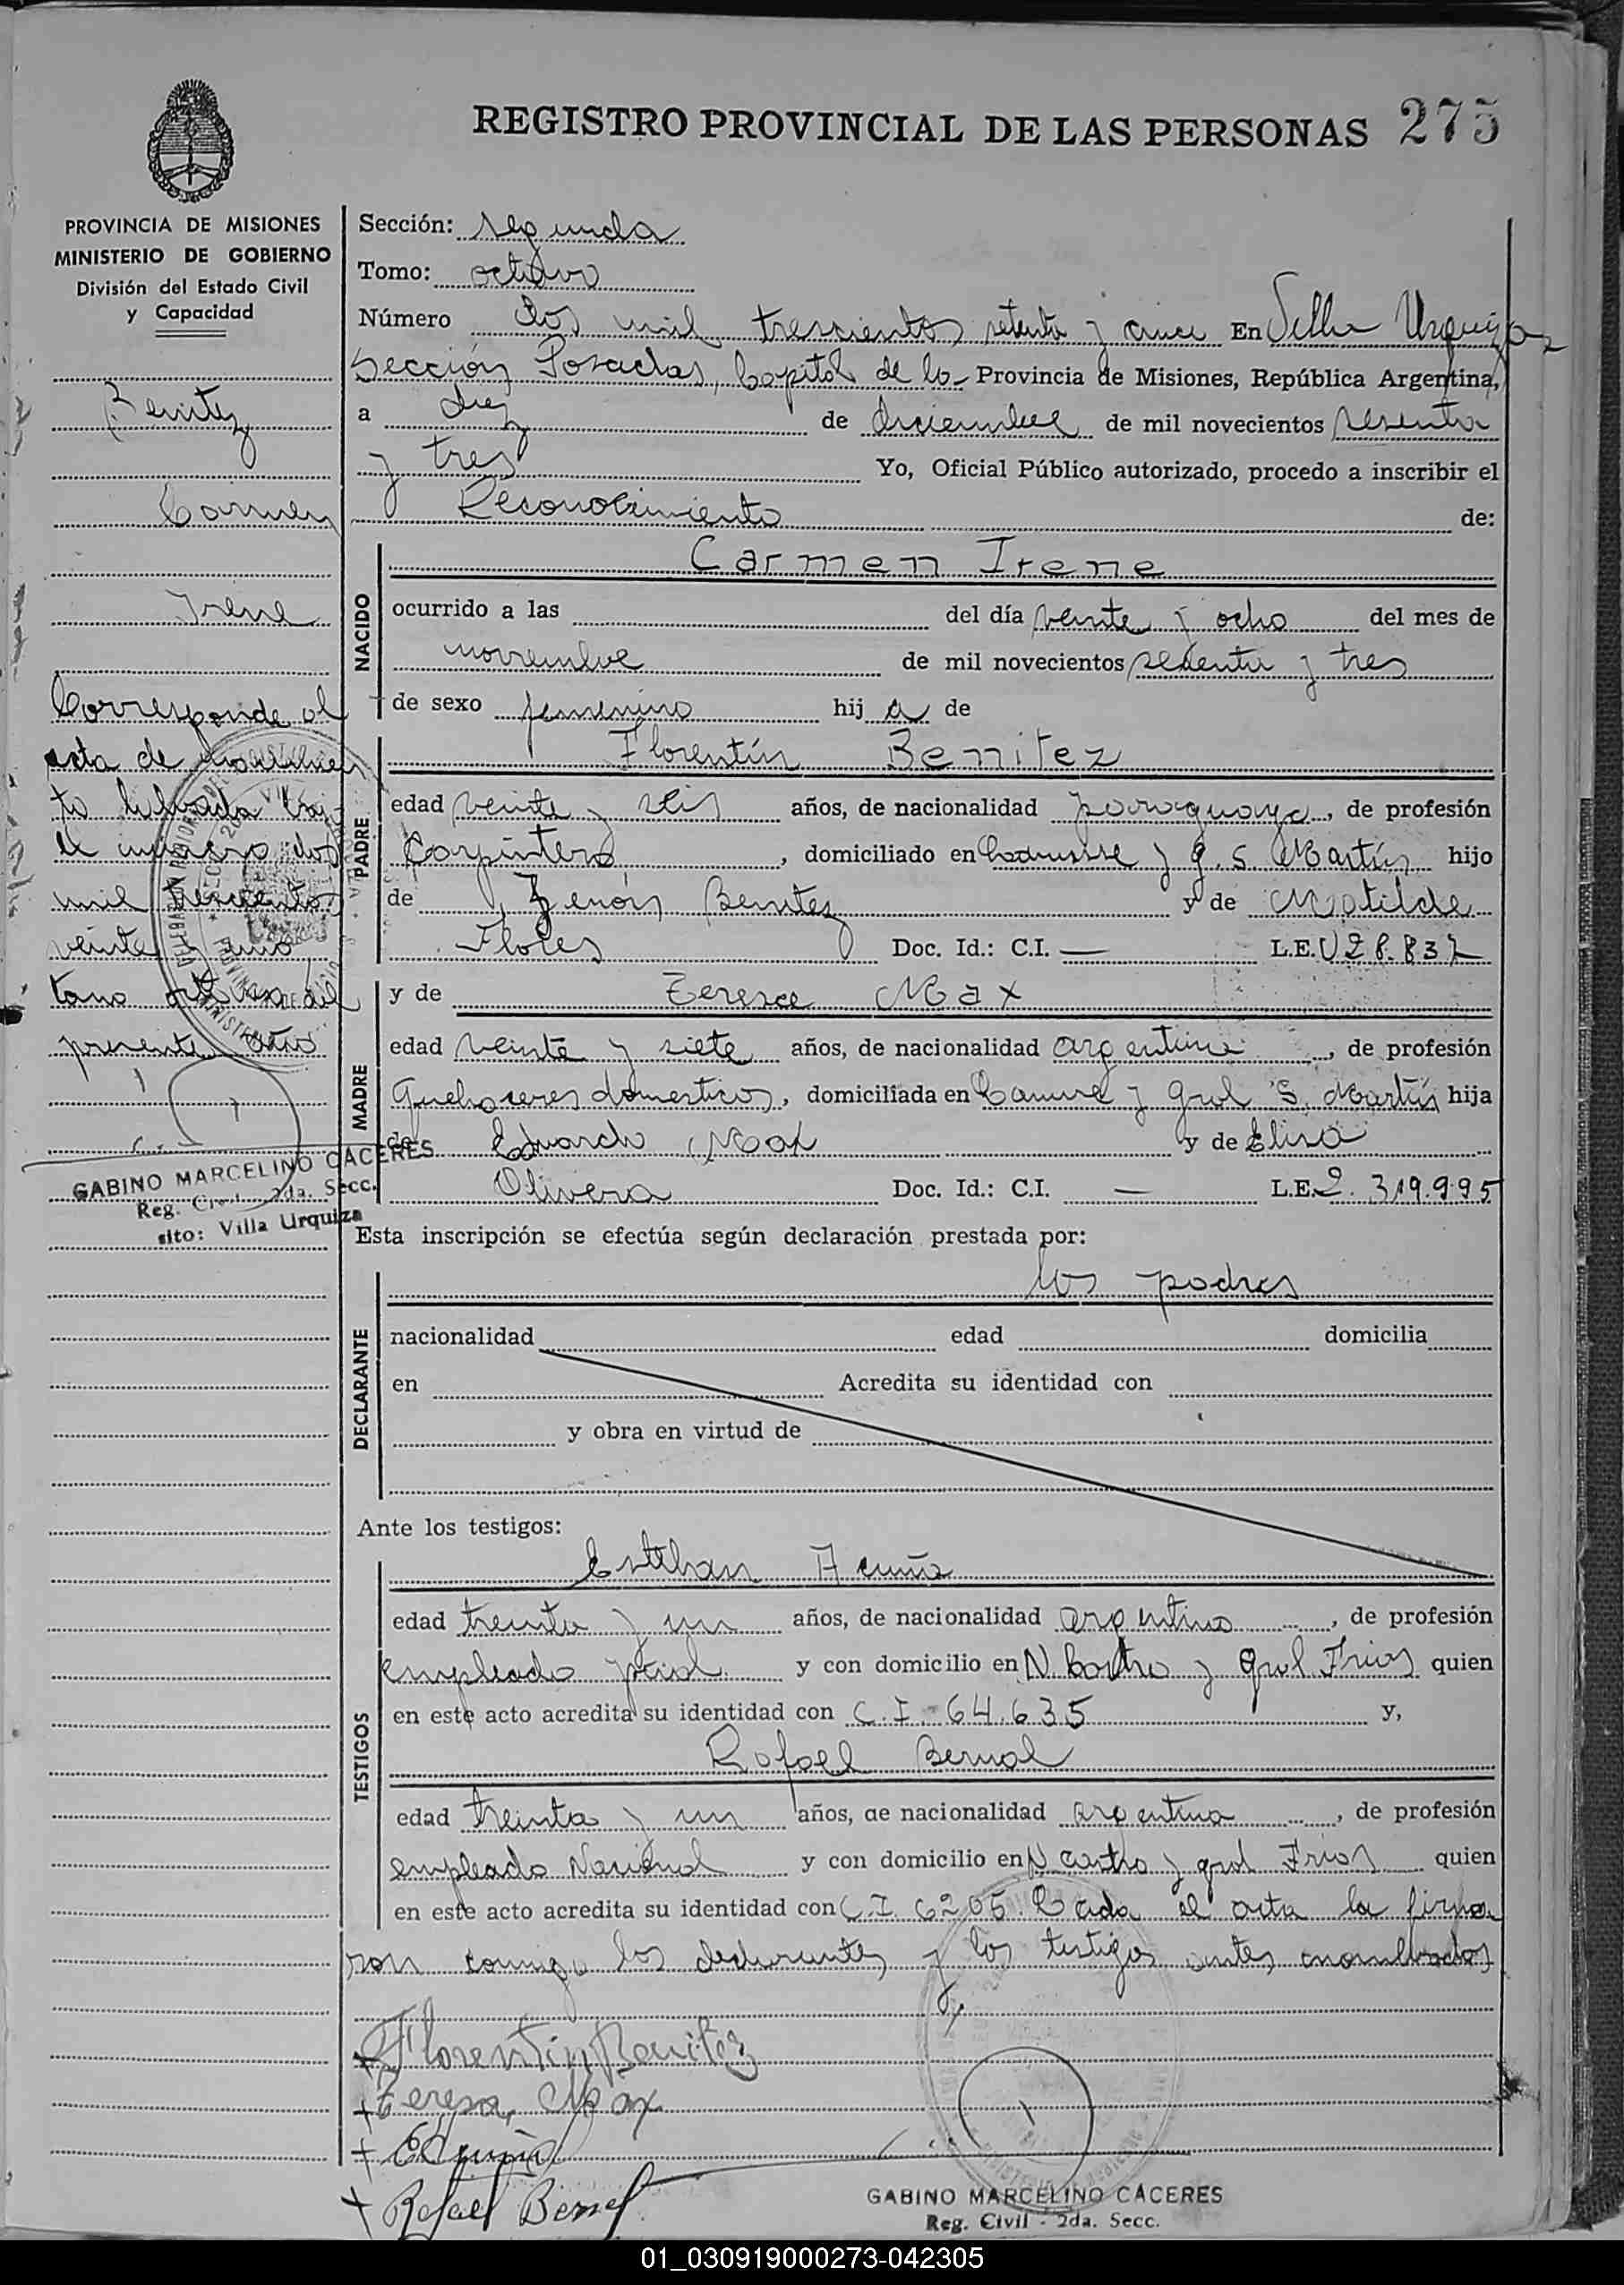 REGISTRO PROVINCIAL DE LAS PERSONAS 275
PROVINCIA DE MISIONES
MINISTERIO DE GOBIERNO
División del Estado Civil
y Capacidad
Benitez
Carmen
Irene
Corresponde al
acta de
to labrada bajo
el número dos
mil trescientos
veinte y uno
tomo octavo del
presente año
GABINO MARCELINO CACERES
Reg. Civil 2da. Secc.
sito: Villa Urquiza
Sección: segunda
Tomo: octavo
Número dos mil trescientos setenta y cinco En Villa Urquiza
Sección Posadas, Capital de la Provincia de Misiones, República Argentina,
a diez de diciembre de mil novecientos sesenta
y tres Yo, Oficial Público autorizado, procedo a inscribir el
Reconocimiento de:
NACIDO
Carmen Irene
ocurrido a las del día veinte y ocho del mes de
noviembre de mil novecientos sesenta y tres
de sexo femenino hij a de
PADRE
Florentín Benitez
edad veinte y seis años, de nacionalidad paraguaya, de profesión
Carpintero, domiciliado en y g. S. Martín hijo
de Zenón Benitez y de Matilde
Flores Doc. Id.: C.I. — L.E. 028.832
MADRE
y de Teresa Max
edad veinte y siete años, de nacionalidad argentina, de profesión
Quehaceres domesticos, domiciliada en y Gral S. Martín hija
de Eduardo Max y de Elisa
Olivera Doc. Id.: C.I. — L.E. 2.319.995
Esta inscripción se efectúa según declaración prestada por:
DECLARANTE
los padres
nacionalidad edad domicilia
en Acredita su identidad con
y obra en virtud de
Ante los testigos:
TESTIGOS
Esteban Acuña
edad treinta y un años, de nacionalidad argentino, de profesión
empleado y con domicilio en N. Castro y Gral Frias quien
en este acto acredita su identidad con C.I. 64.635 y,
Rafael Bernal
edad treinta y un años, de nacionalidad argentina, de profesión
empleado Nacional y con domicilio en N Castro y gral Frias quien
en este acto acredita su identidad con C.I. 6205 Leida el acta la firma
ron conmigo los declarantes y los testigos antes nombrados
Florentin Benitez
Teresa Max
EAcuña
Rafael Bernal
GABINO MARCELINO CACERES
Reg. Civil - 2da. Secc.
01_030919000273-042305